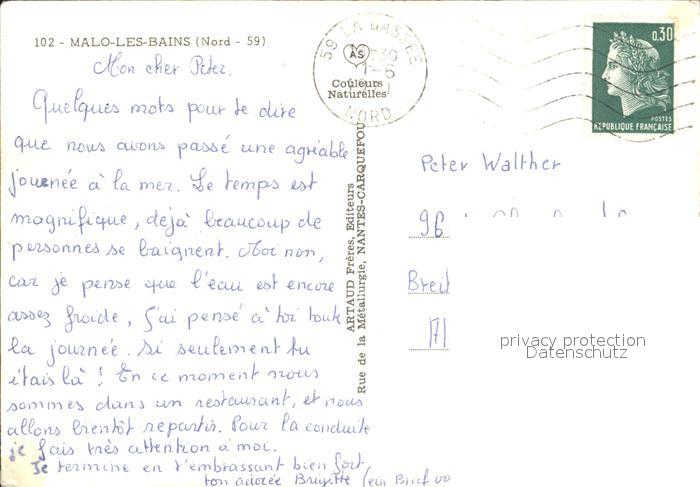 102 - MALO-LES-BAINS (Nord - 59)
Mon cher Peter.
Quelques mots pour te dire
que nous avons passé une agréable
journée à la mer. Le temps est
magnifique, déjà beaucoup de
personnes se baignent. Moi non,
car je pense que l'eau est encore
assez froide, J'ai pensé à toi toute
la journée. Si seulement tu
étais là ! En ce moment nous
sommes dans un restaurant, et nous
allons bientôt repartir. Pour la conduite
je fais très attention à moi.
Je termine en t'embrassant bien fort,
ton adorée Brigitte (ein Brief
59 LA BASSEE
AS
1-6
NORD
Couleurs
Naturelles
ARTAUD Frères, Editeurs
Rue de la Métallurgie, NANTES-CARQUEFOU
0,30
POSTES
RÉPUBLIQUE FRANÇAISE
Peter Walther
96
Breit
71
privacy protection
Datenschutz